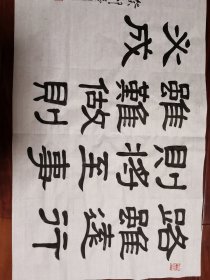 路雖遠行
則將至事
雖難做則
必成